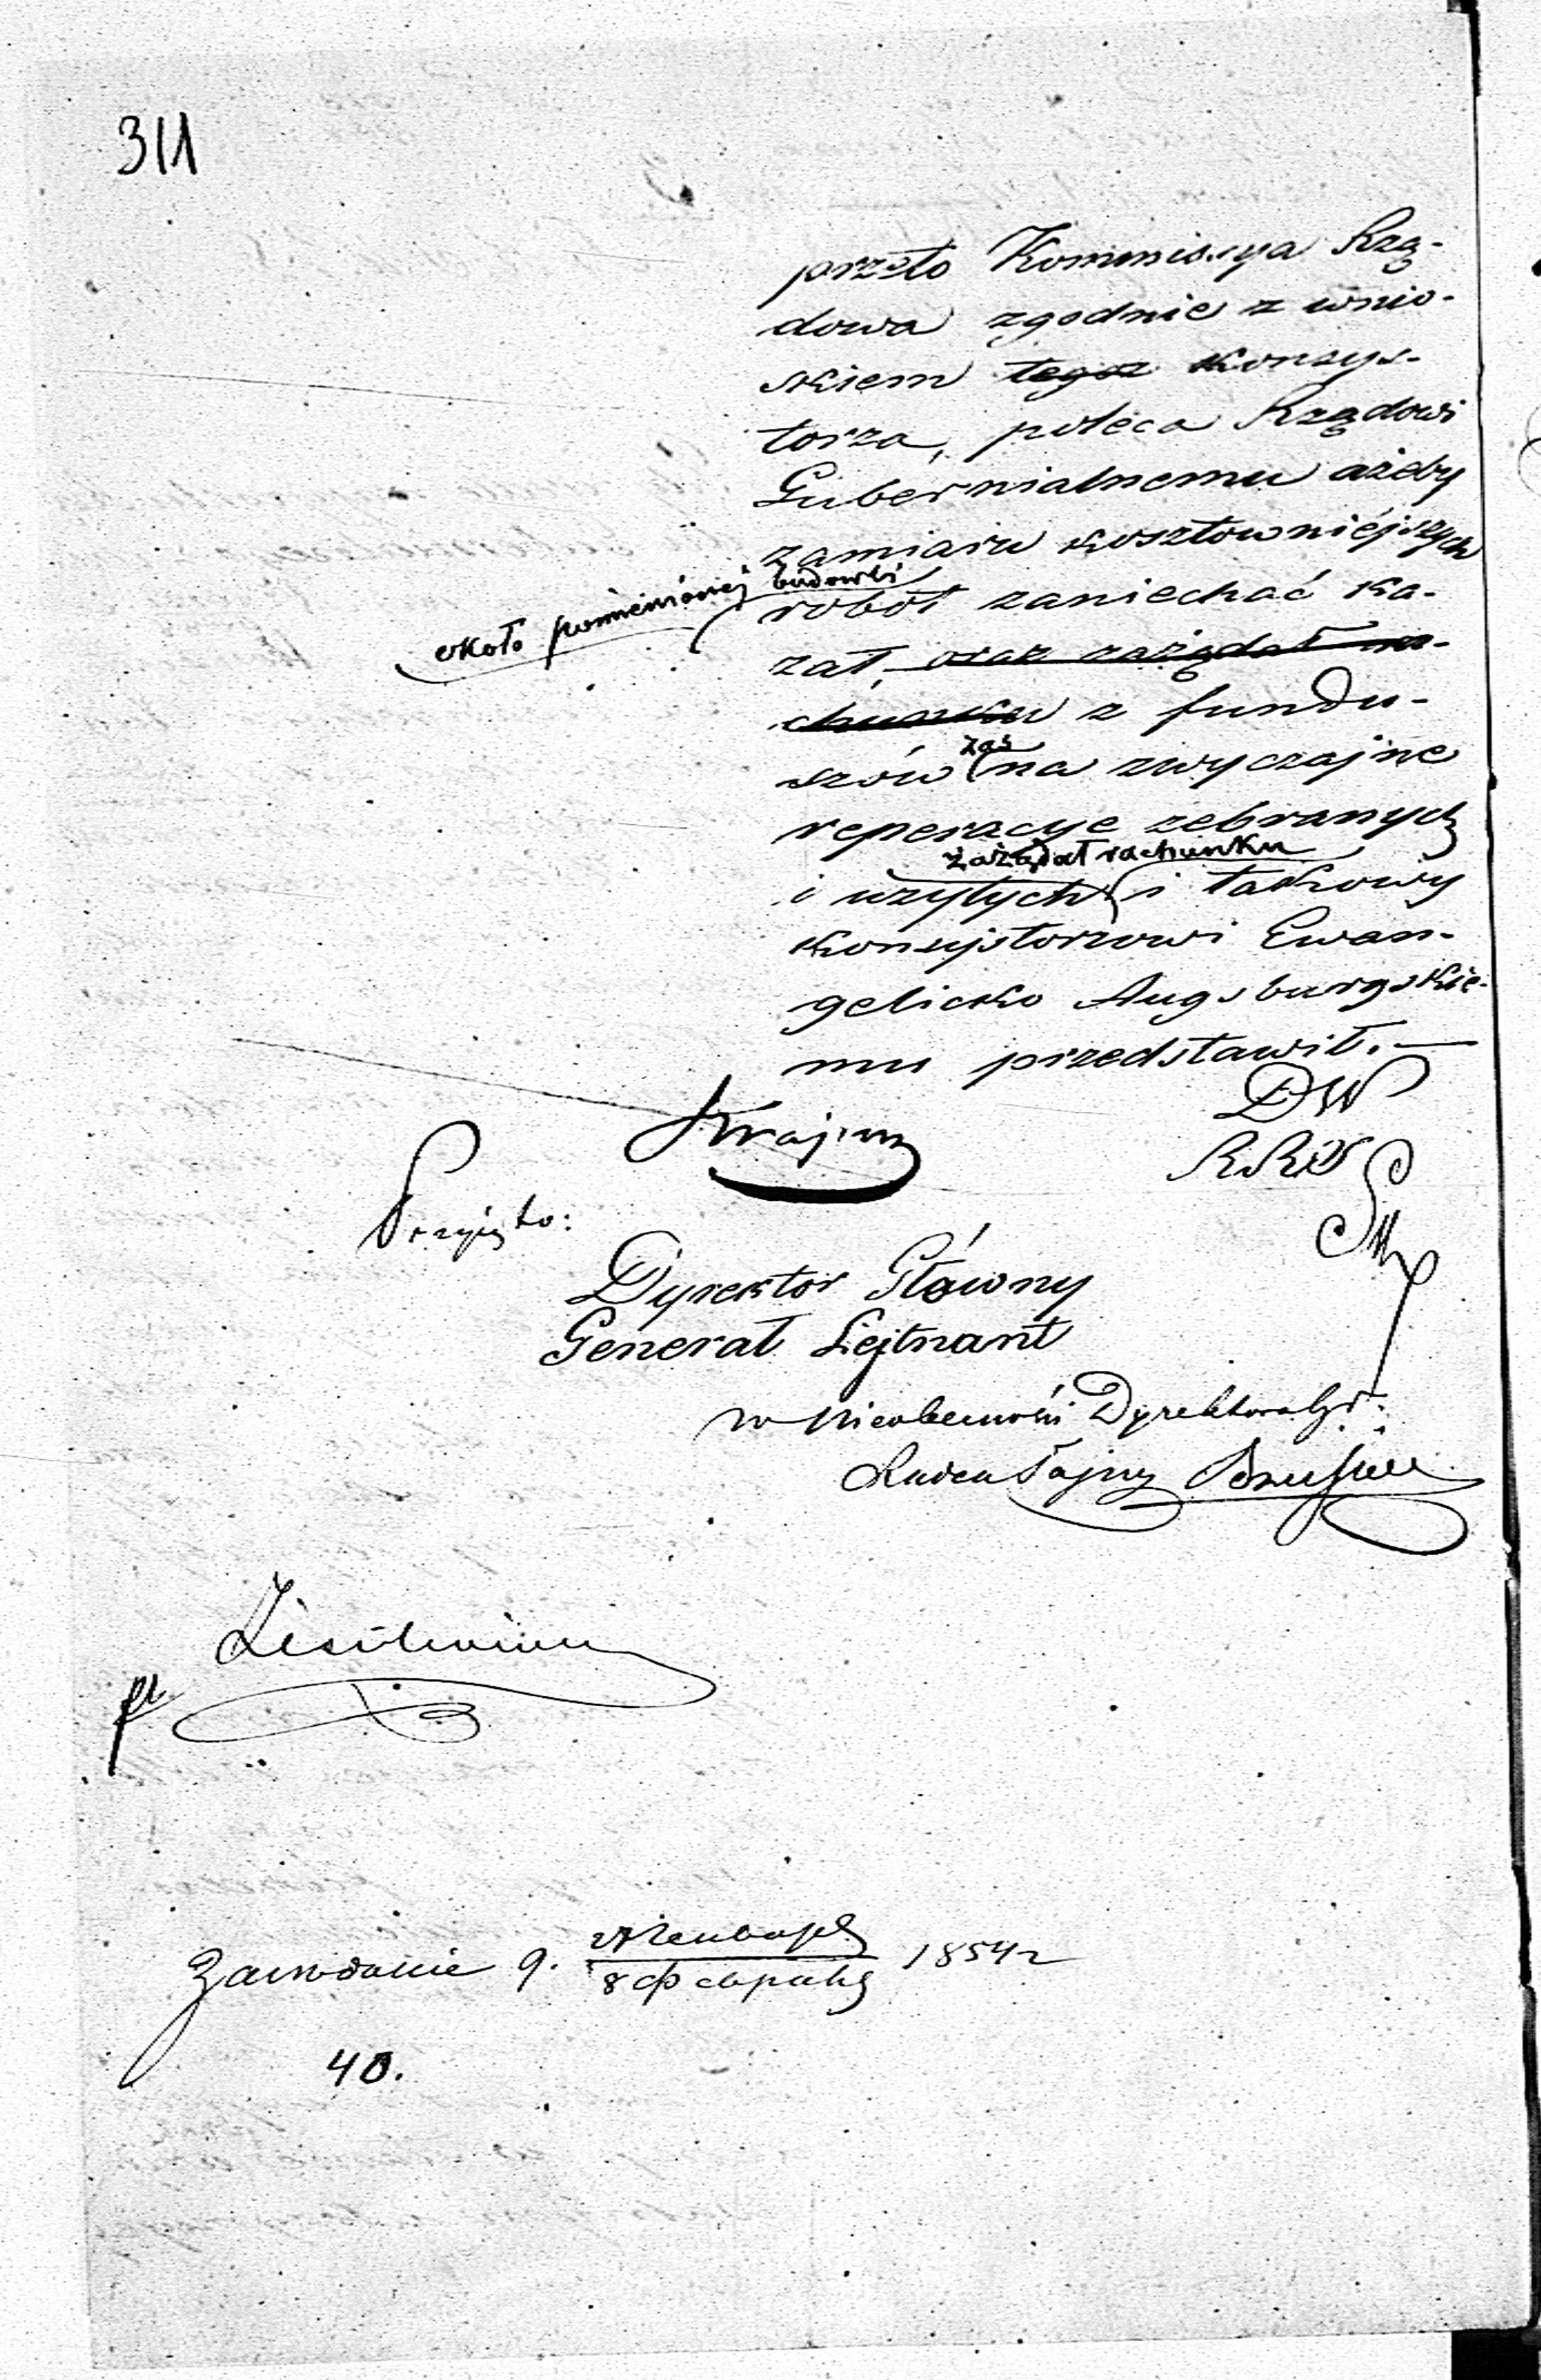 311
przeto Kommissya Rzą-
dowa zgodnie z wnio-
skiem tegoz Konsys-
torza, poleca Rządowi
Gubernialnemu ażeby
zamiaru kosztowniéjszych
około pomienionéj budowli
robót zaniechać ka-
zał, oraz zażądał ra-
chunku z fundu-
szów zaś na zwyczajne
reperacye zebranych
zażądał rachunku
i użytych i takowy
Konsystorzowi Ewan-
gelicko Augsburgskie-
mu przedstawił.—
DW
RRS
Przyjęto:
Dyrektor Główny
Generał Lejtnant
w nieobecności Dyrektora
Radca Tajny
40.
1854 r